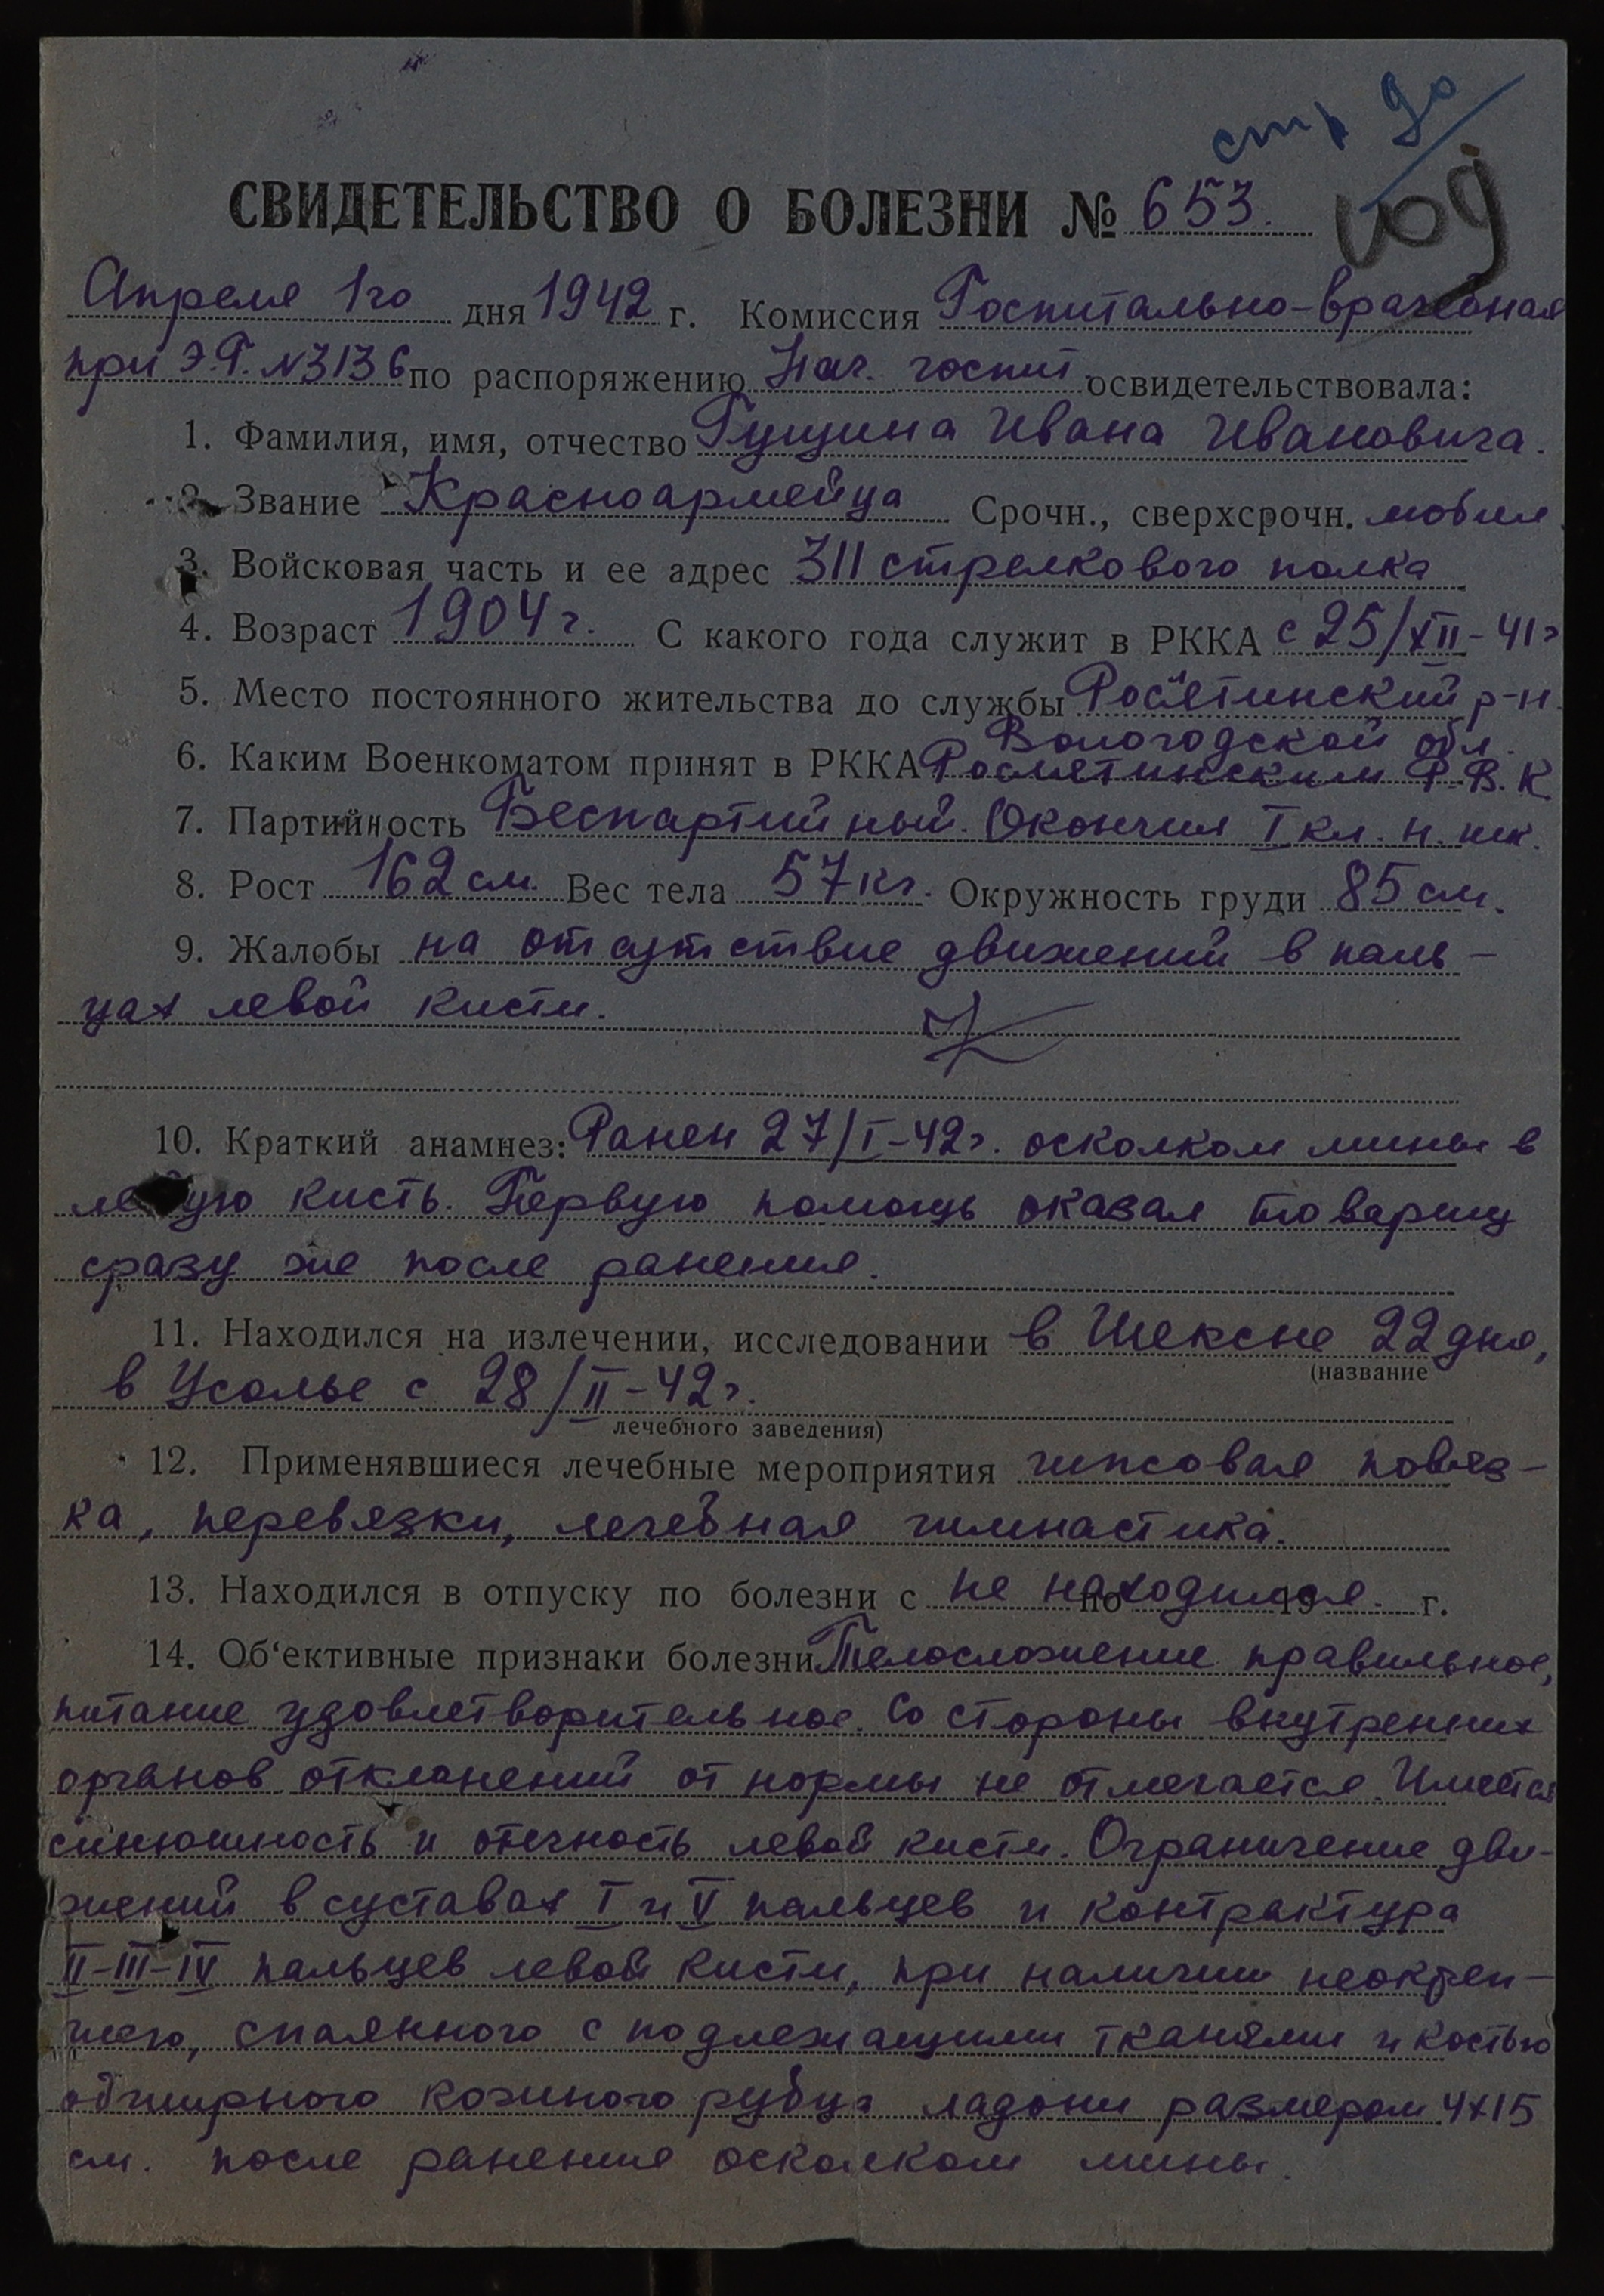 стр 90
СВИДЕТЕЛЬСТВО О БОЛЕЗНИ № 653.
Апреля 1го дня 1942 г. Комиссия Госпитально-врачебная
при Э.Г. №3136 по распоряжению Нач. госпит. освидетельствовала:
1. Фамилия, имя, отчество Гущина Ивана Ивановича.
2. Звание Красноармейца Срочн., сверхсрочн. мобил.
3. Войсковая часть и ее адрес 311 стрелкового полка
4. Возраст 1904 г. С какого года служит в РККА с 25/XII-41г
5. Место постоянного жительства до службы Рослятинский р-н.
Вологодской обл.
6. Каким Военкоматом принят в РККА Рослятинским Р.В.К.
7. Партийность Беспартийный. Окончил I кл. н. шк.
8. Рост 162 см. Вес тела 57 кг. Окружность груди 85 см.
9. Жалобы на отсутствие движений в паль-
цах левой кисти.
10. Краткий анамнез: Ранен 27/I-42г. осколком мины в
левую кисть. Первую помощь оказал товарищ
сразу же после ранения.
11. Находился на излечении, исследовании в Шексне 22 дня,
(название
в Усолье с 28/II-42г.
лечебного заведения)
12. Применявшиеся лечебные мероприятия гипсовая повяз-
ка, перевязки, лечебная гимнастика.
13. Находился в отпуску по болезни с не находился. по 19 г.
14. Об‘ективные признаки болезни Телосложение правильное,
питание удовлетворительное. Со стороны внутренних
органов отклонений от нормы не отмечается. Имеется
синюшность и отечность левой кисти. Ограничение дви-
жений в суставах I и V пальцев и контрактура
II-III-IV пальцев левой кисти, при наличии неокреп-
шего, спаянного с подлежащими тканями и костью
обширного кожного рубца ладони размером 4х15
см. после ранения осколком мины.